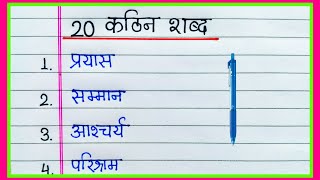 20 कठिन शब्द
1. प्रयास
2. सम्मान
3. आश्चर्य
4. परिश्रम